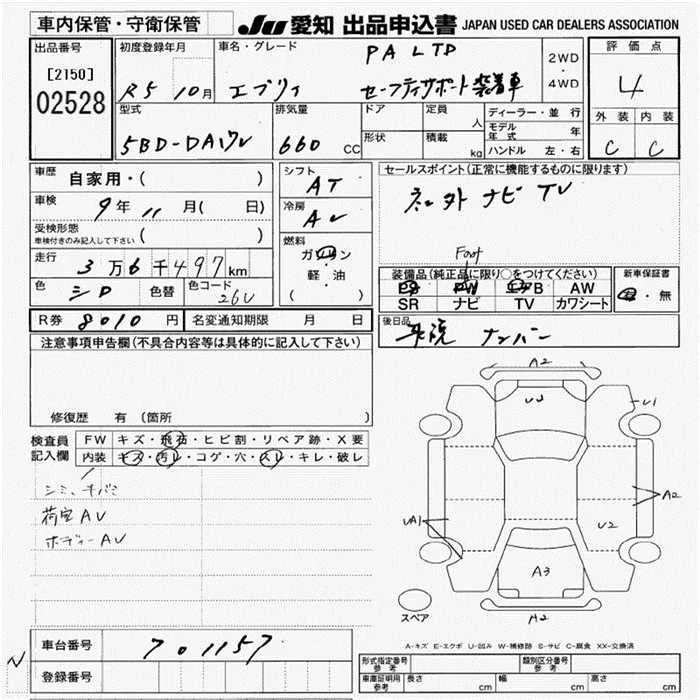 車内保管・守衛保管 JU 愛知 出品申込書 JAPAN USED CAR DEALERS ASSOCIATION
出品番号 初度登録年月 車名・グレード PA LTD 2WD 評価点
[2150] R5 10月 エブリィ セーフティサポート装着車 4WD 4
02528
型式 排気量 ドア 定員 人 ディーラー・並行 外装 内装
5BD-DA17V 660 CC 形状 積載 kg モデル年式 年 C C
ハンドル 左・右
車歴 自家用・( ) シフト AT セールスポイント(正常に機能するものに限ります)
車検 9年 11月( 日) 冷房 AC 社外 ナビ TV
受検形態 ( )
車検付きのみ記入して下さい
燃料 ガソリン 軽・油 ( )
走行 3万6千497km
装備品(純正品に限り○をつけてください) 新車保証書
PS PW エアB AW 有・無
SR ナビ TV カワシート
色 シロ 色替 色コード 26U
R券 8010円 名変通知期限 月 日 後日品 ナンバー
注意事項申告欄(不具合内容等は具体的に記入して下さい)
修復歴 有 (箇所 )
検査員 記入欄
FW キズ・飛石・ヒビ割・リペア跡・X要
内装 キズ・汚レ・コゲ・穴・スレ・キレ・破レ
シミ、
荷室AU
ボディーAU
A2
U3
U1
A2
UA1
U2
A3
A2
スペア
A-キズ E-エクボ U-凹み W-補修跡 S-サビ C-腐食 XX-交換済
車台番号 701157
登録番号
形式指定番号 参考 類別区分番号 参考
車庫証明用 参考 長さ cm 幅 cm 高さ cm